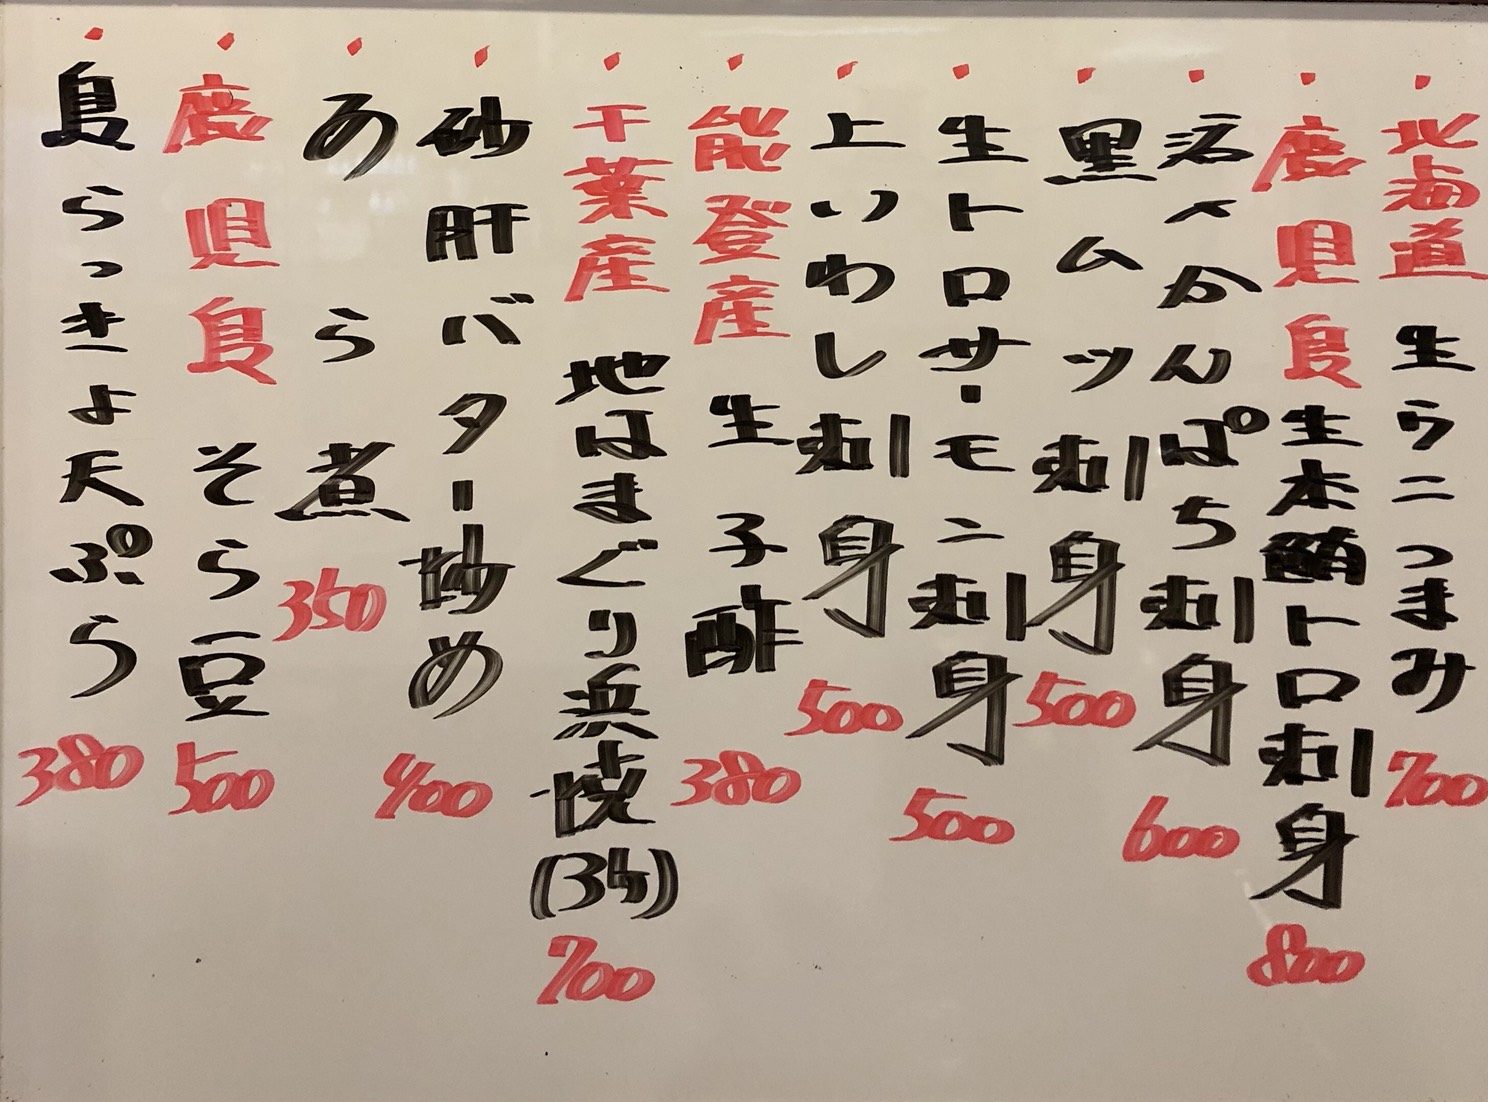 北海道 生ウニつまみ 700
鹿児島 生本鮪トロ刺身 800
活〆かんぱち刺身 600
黒ムツ刺身 500
生トロサーモン刺身 500
上いわし刺身 500
能登産 生子酢 380
千葉産 地はまぐり浜焼(3ケ) 700
砂肝バター炒め 400
あら煮 350
鹿児島 そら豆 500
島らっきょ天ぷら 380